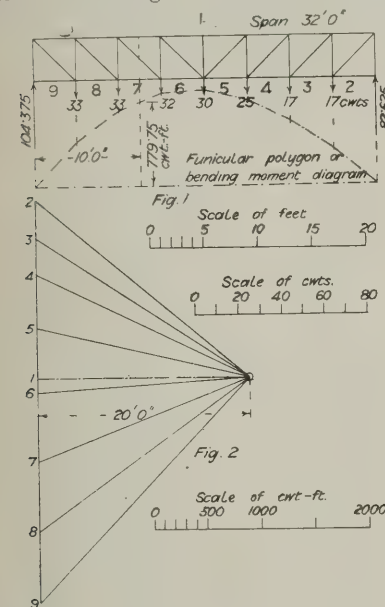 Span 32'0"
9 8 7 6 5 4 3 2
33 33 32 30 25 17 17 cwts
104·375
10'0"
779·75
cwt-ft.
Funicular polygon or
bending moment diagram
Fig. 1
Scale of feet
0 5 10 20
Scale of cwts.
0 20 40 60 80
2
3
4
5
1
6
7
8
9
20'0"
Fig. 2
Scale of cwt-ft.
0 500 1000 2000